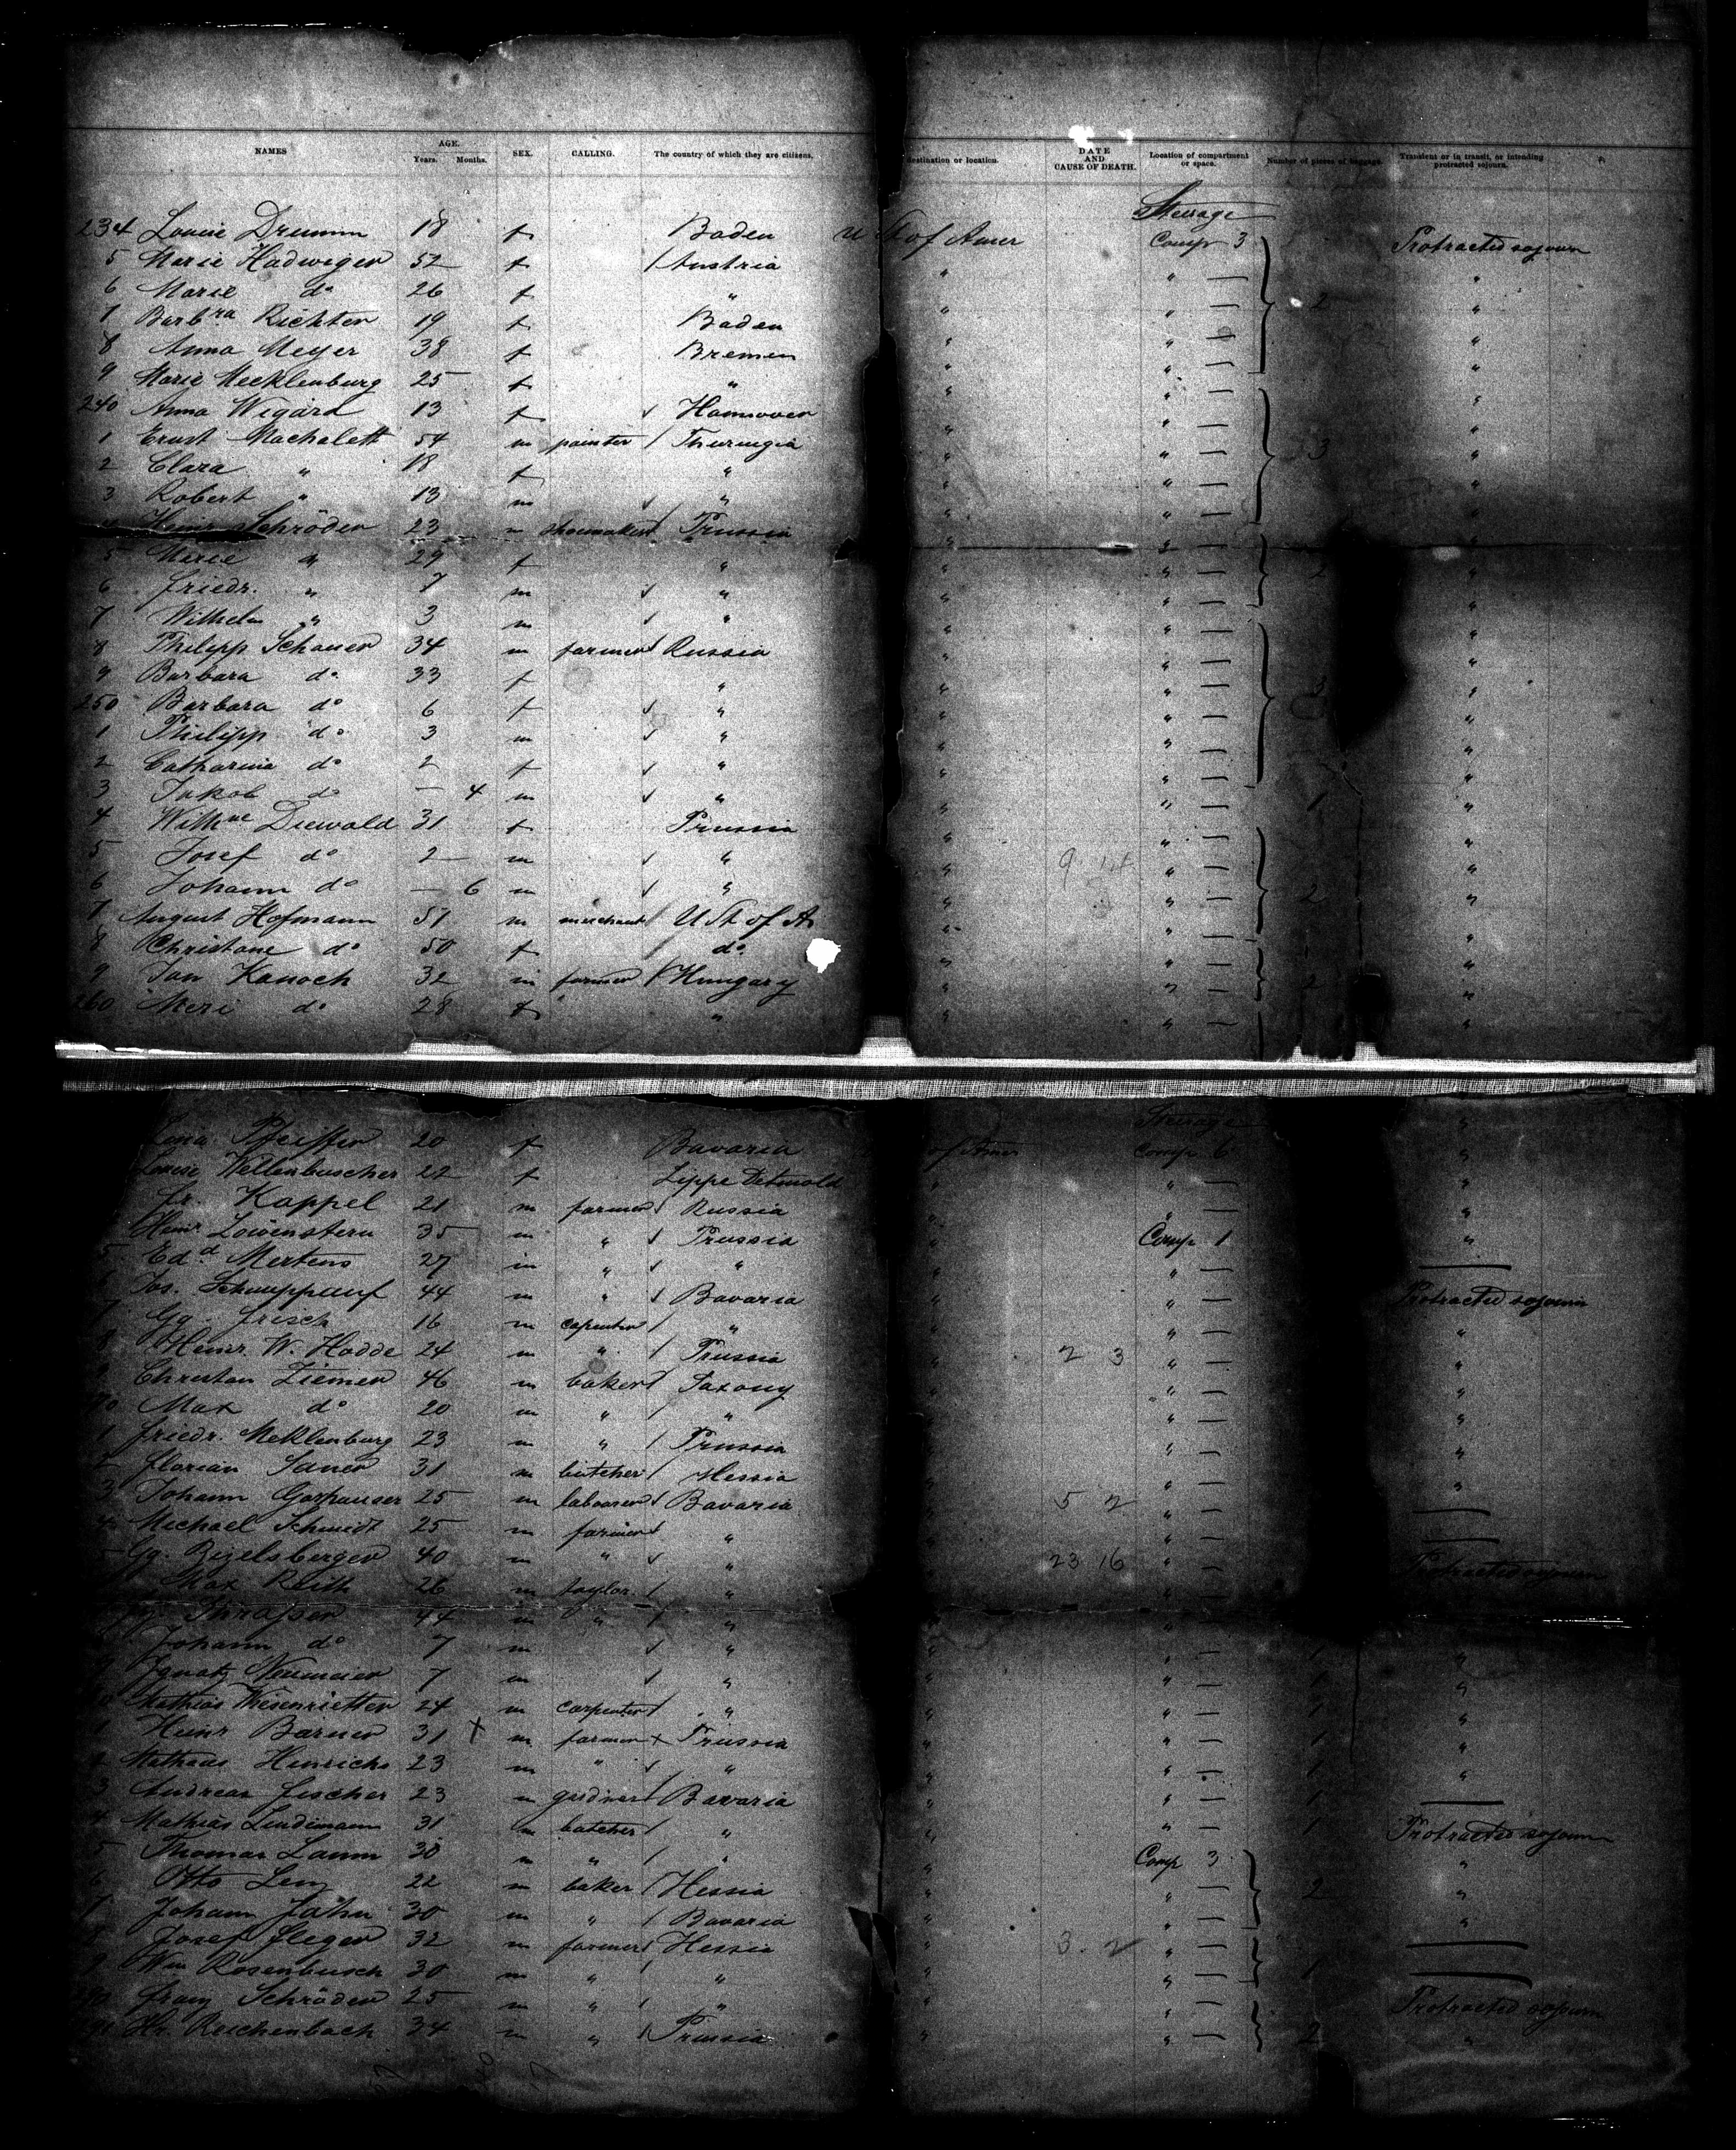 NAMES AGE. Years. Months. SEX. CALLING. The country of which they are citizens. destination or location. DATE AND CAUSE OF DEATH. Location of compartment or space. Number of pieces of baggage. Transient or in transit, or intending protracted sojourn.
Steerage
234 Louise Drumm 18 f Baden U St of Amer Comp 3 Protracted sojourn
5 Marie Hadweger 52 f / Austria " " — "
6 Marie do 26 f " " " — 2 "
7 Barbra Richter 19 f Baden " " — "
8 Anna Meyer 38 f Bremen " " — "
9 Marie Mecklenburg 25 f " " " — "
240 Anna Wigard 13 f ✓ Hannover " " — "
1 Ernst Machalett 54 m painter / Thuringia " " — 3 "
2 Clara " 18 f " " " — "
3 Robert " 13 m ✓ " " " — "
4 Heinr Schröder 23 m shoemaker / Prussia " " — "
5 Marie " 29 f " " " — 2 "
6 Friedr. " 7 m ✓ " " " — "
7 Wilhelm " 3 m ✓ " " " — "
8 Philipp Schauer 34 m farmer / Russia " " — "
9 Barbara do 33 f " " " — 3 "
250 Barbara do 6 f ✓ " " " — "
1 Philipp do 3 m ✓ " " " — "
2 Catharina do 2 f ✓ " " " — "
3 Jakob do — 4 m ✓ " " " — 1 "
4 Withne Diewald 31 f Prussia " " — "
5 Josef do 2 m ✓ " " 9 14 " — "
6 Johann do — 6 m ✓ " " " — 2 "
7 August Hofmann 51 m merchant / U St of A " " — "
8 Christane do 50 f / do " " — "
9 Jan Kanoch 32 m farmer / Hungary " " — 2 "
260 Meri do 28 f " " " — "
Steerage
Lina Pfeiffer 20 f Bavaria of Amer Comp 6 "
Louise Wellenbuscher 22 f Lippe Detmold " " — "
Fr. Kappel 21 m farmer / Russia " " — "
Heinr Löwenstern 35 m " ✓ Prussia " Comp 1 "
5 Edd Mertens 27 m " ✓ " " " — —
Jos. Schnuppauf 44 m " ✓ Bavaria " " — Protracted sojourn
7 Gg. Frisch 16 m carpenter / " " " — "
8 Heinr. W. Hadde 24 m " / Prussia " 2 3 " — "
9 Christian Ziemer 46 m baker / Saxony " " — "
70 Max do 20 m " / " " " — "
1 Friedr. Meklenburg 23 m " / Prussia " " — "
2 Florian Sauer 31 m butcher / Hessia " " — "
3 Johann Gashauser 25 m labourer / Bavaria " 5 2 " — —
4 Michael Schmidt 25 m farmer / " " " — —
5 Gg. Bezelsberger 40 m " ✓ " " 23 16 " — Protracted sojourn
Max Reith 26 m taylor / " "
Strasser 44 m " / " " "
Johann do 7 m ✓ " " " — 1 "
Ignatz Neumeier 7 m ✓ " " " — 1 "
Mathias Wiesenrietter 24 m carpenter / " " " — 1 "
1 Heinr Barner 31 x m farmer x Prussia " " — 1 "
2 Mathias Hinrichs 23 m " ✓ " " " — 1 "
3 Andreas Fischer 23 m gardner / Bavaria " " — 1 —
4 Mathias Lindemann 31 m butcher / " " " — 1 Protracted sojourn
5 Thomas Lamm 30 m " / " " Comp 3 "
6 Otto Lenz 22 m baker / Hessia " " — 2 "
7 Johann Jahn 30 m " / Bavaria " " — "
8 Josef Fleger 32 m farmer / Hessia " 3. 2 " — —
9 Wm Rosenbusch 30 m " / " " " — 1 —
290 Franz Schröder 25 m " / " " " — Protracted sojourn
291 Hr. Reichenbach 34 m " / Prussia " " — 2 "